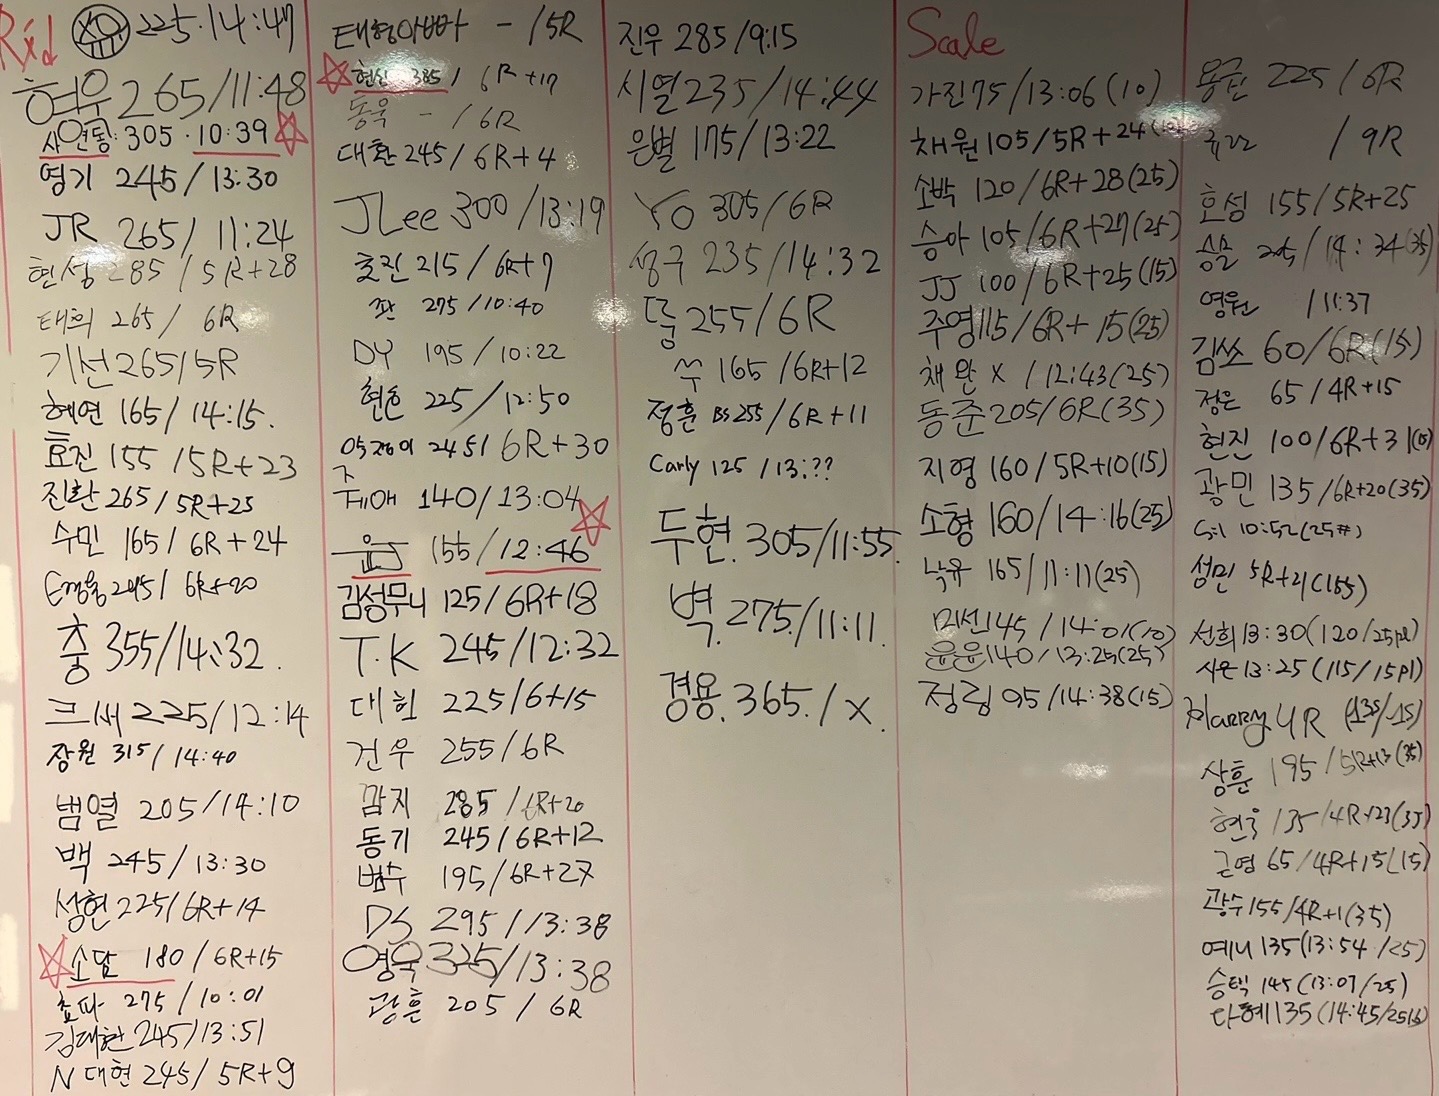 Rxd 225·14:47
현우 265/11:48
사연동: 305·10:39
영기 245/13:30
JR 265/11:24
현성 285/5R+28
태희 265/ 6R
기선 265/5R
혜연 165/14:15.
효진 155/5R+23
진환 265/5R+25
수민 165/6R+24
245/6R+20
충 355/14:32.
크새 225/12:14
장원 315/14:40
범열 205/14:10
백 245/13:30
성현 225/6R+14
소담 180/6R+15
효따 275/10:01
김대현 245/13:51
N 대현 245/5R+9
태형아빠 - /5R
385/6R+17
동욱 - /6R
대환 245/6R+4
JLee 300/13:19
효진 215/6R+7
275/10:40
DY 195/10:22
현호 225/12:50
6R+30
140/13:04
윤J 155/12:46
김성무니 125/6R+18
T.K 245/12:32
대헌 225/6+15
건우 255/6R
감지 285/6R+20
동기 245/6R+12
범수 195/6R+27
DS 295/13:38
영욱 325/13:38
광훈 205/6R
진우 285/9:15
시열 235/14:44
은별 175/13:22
YO 305/6R
성구 235/14:32
255/6R
쑤 165/6R+12
정훈 BS 255/6R+11
Carly 125/13:??
두현. 305/11:55
벽. 275./11:11.
경용. 365./X.
Scale
가진 75/13:06(10)
채원 105/5R+24
소박 120/6R+28(25)
승아 105/6R+27(25)
JJ 100/6R+25(15)
주영 115/6R+15(25)
채완 X /12:43(25)
동준 205/6R(35)
지영 160/5R+10(15)
소형 160/14:16(25)
낙유 165/11:11(25)
미선 145/14:01(10)
윤윤 140/13:25(25)
정림 95/14:38(15)
225/6R
/9R
효성 155/5R+25
승모 14:34(35)
영원 /11:37
김쏘 60/6R(15)
정은 65/4R+15
현진 100/6R+31
광민 135/6R+20(35)
10:52(25#)
성민 5R+21
선희 13:30(120/25pl)
시은 13:25(115/15pl)
4R (135/15)
상훈 195/5R+13(35)
현욱 135/4R+23(35)
근영 65/4R+15(15)
광수 155/4R+1(35)
예니 135(13:54/25)
승택 145(13:07/25)
다혜 135(14:45/25lb)